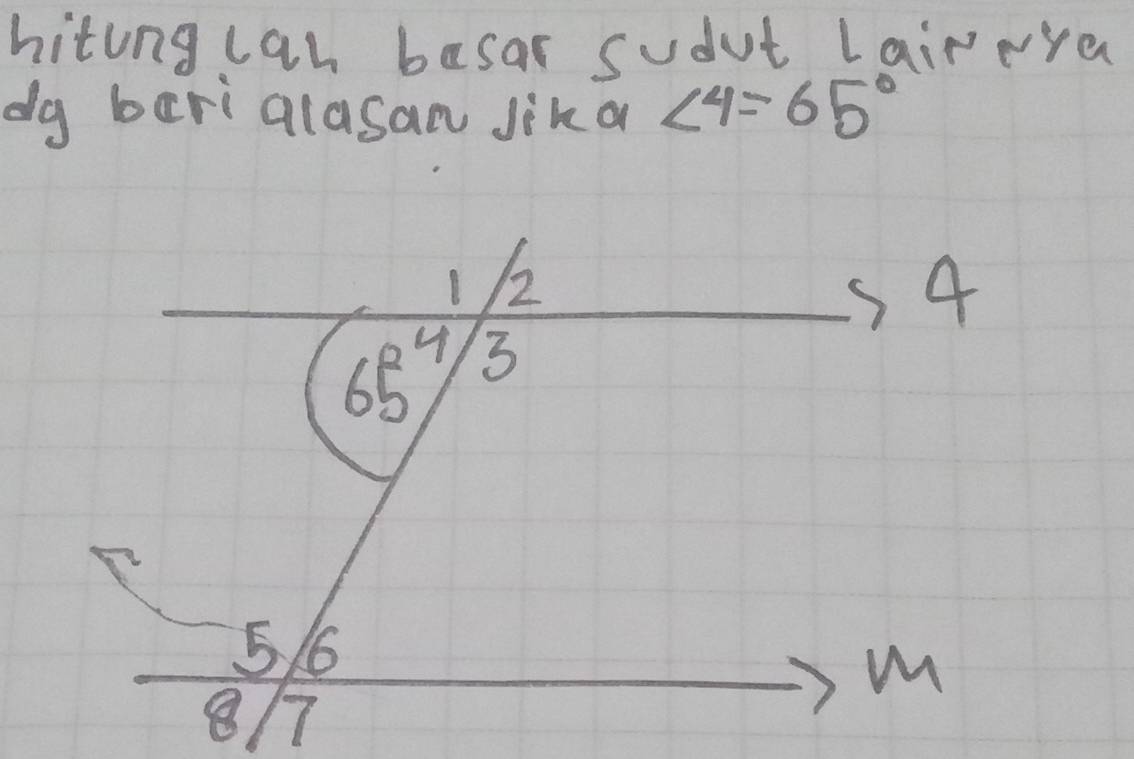 hitunglah besar sudut Lainnya
dg beri alasan Jika <4=65°
1 2
4
65° 4 3
5 6
m
8 7